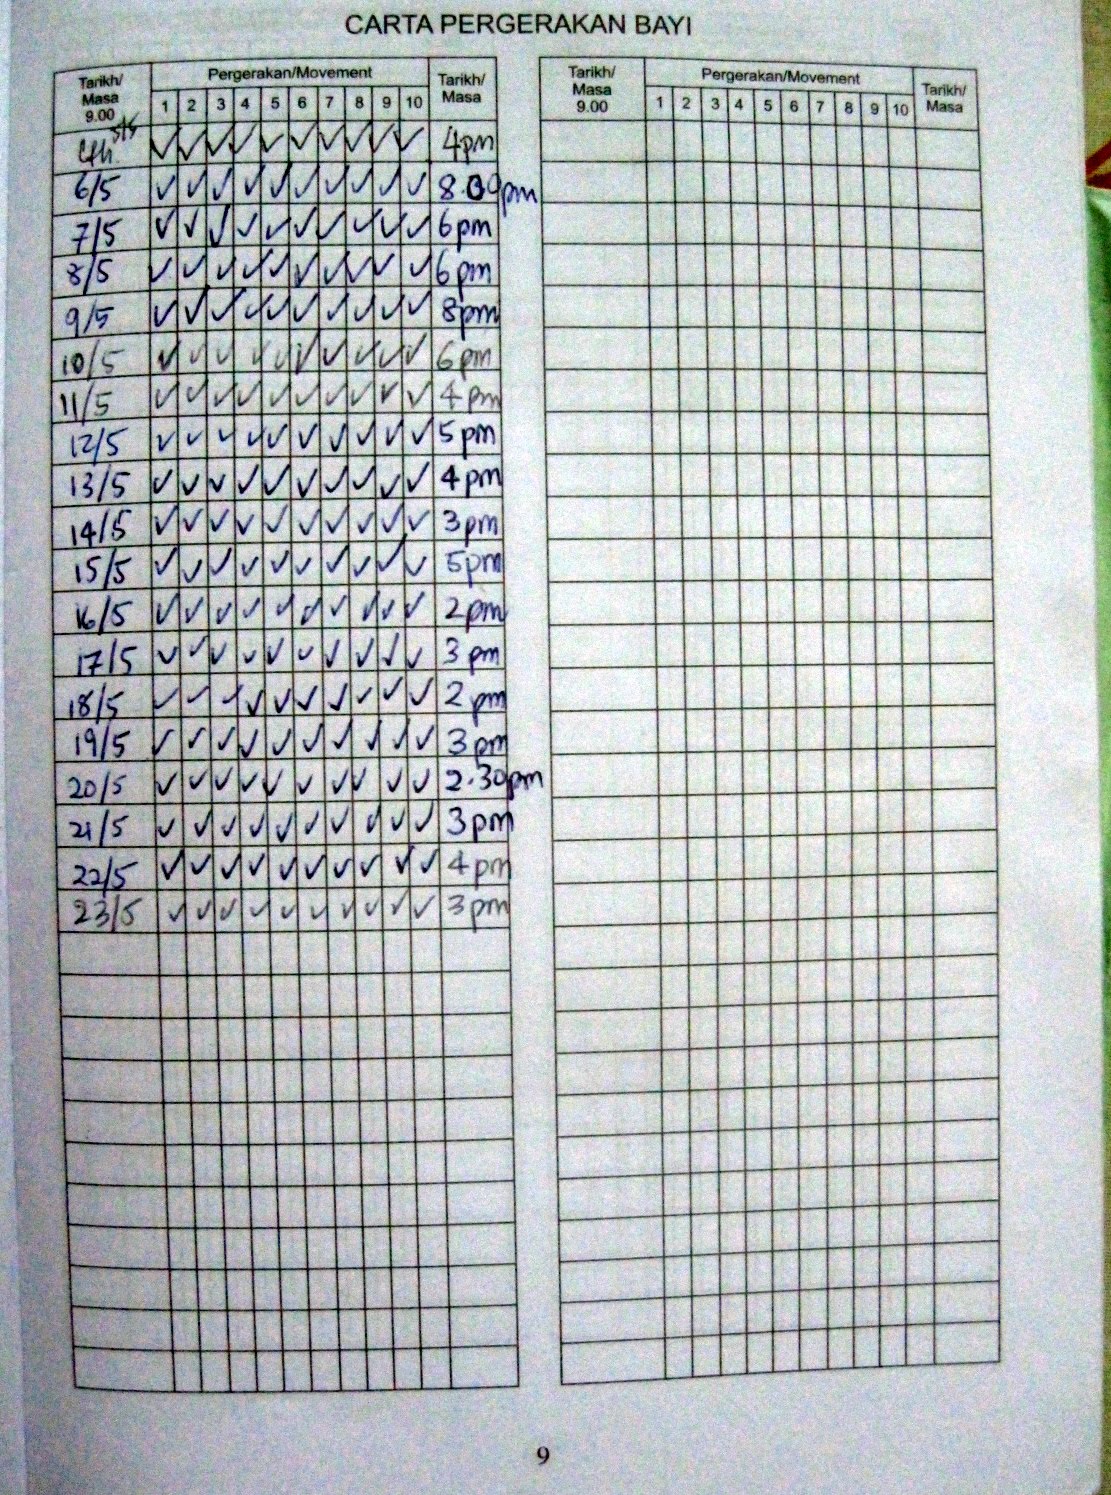 CARTA PERGERAKAN BAYI
Tarikh/ Masa 9.00 Pergerakan/Movement Tarikh/ Masa
1 2 3 4 5 6 7 8 9 10
Tarikh/ Masa 9.00 Pergerakan/Movement Tarikh/ Masa
1 2 3 4 5 6 7 8 9 10
5/5 ✓ ✓ ✓ ✓ ✓ ✓ ✓ ✓ ✓ ✓ 4pm
6/5 ✓ ✓ ✓ ✓ ✓ ✓ ✓ ✓ ✓ ✓ 8.00pm
7/5 ✓ ✓ ✓ ✓ ✓ ✓ ✓ ✓ ✓ ✓ 6pm
8/5 ✓ ✓ ✓ ✓ ✓ ✓ ✓ ✓ ✓ ✓ 6pm
9/5 ✓ ✓ ✓ ✓ ✓ ✓ ✓ ✓ ✓ ✓ 8pm
10/5 ✓ ✓ ✓ ✓ ✓ ✓ ✓ ✓ ✓ ✓ 6pm
11/5 ✓ ✓ ✓ ✓ ✓ ✓ ✓ ✓ ✓ ✓ 4pm
12/5 ✓ ✓ ✓ ✓ ✓ ✓ ✓ ✓ ✓ ✓ 5pm
13/5 ✓ ✓ ✓ ✓ ✓ ✓ ✓ ✓ ✓ ✓ 4pm
14/5 ✓ ✓ ✓ ✓ ✓ ✓ ✓ ✓ ✓ ✓ 3pm
15/5 ✓ ✓ ✓ ✓ ✓ ✓ ✓ ✓ ✓ ✓ 5pm
16/5 ✓ ✓ ✓ ✓ ✓ ✓ ✓ ✓ ✓ ✓ 2pm
17/5 ✓ ✓ ✓ ✓ ✓ ✓ ✓ ✓ ✓ ✓ 3pm
18/5 ✓ ✓ ✓ ✓ ✓ ✓ ✓ ✓ ✓ ✓ 2pm
19/5 ✓ ✓ ✓ ✓ ✓ ✓ ✓ ✓ ✓ ✓ 3pm
20/5 ✓ ✓ ✓ ✓ ✓ ✓ ✓ ✓ ✓ ✓ 2.30pm
21/5 ✓ ✓ ✓ ✓ ✓ ✓ ✓ ✓ ✓ ✓ 3pm
22/5 ✓ ✓ ✓ ✓ ✓ ✓ ✓ ✓ ✓ ✓ 4pm
23/5 ✓ ✓ ✓ ✓ ✓ ✓ ✓ ✓ ✓ ✓ 3pm
9